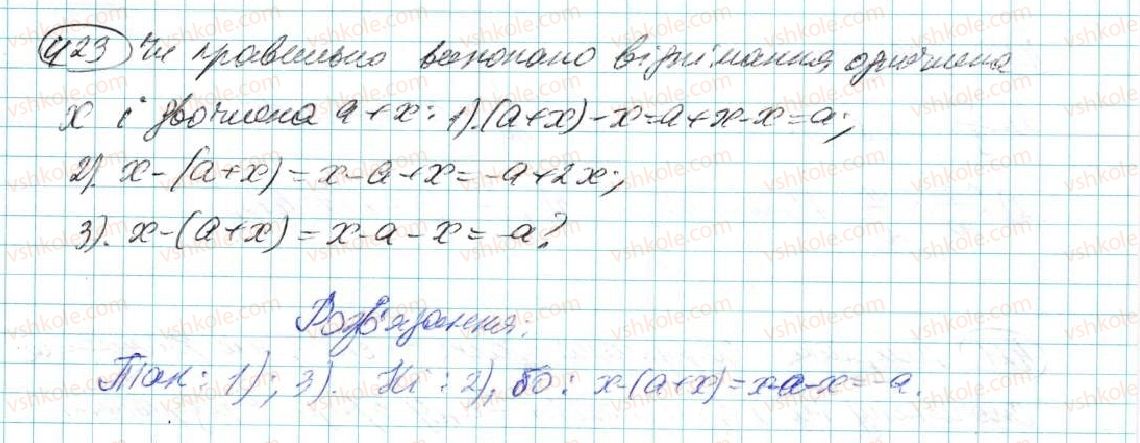 423 Чи правильно виконано віднімання одночлена
x і двочлена a + x: 1).(a+x) - x = a + x - x = a;
2). x - (a+x) = x - a + x = -a + 2x;
3). x - (a+x) = x - a - x = -a?
Розв'язання:
Так: 1); 3). Ні: 2), бо: x-(a+x) = x-a-x = -a.